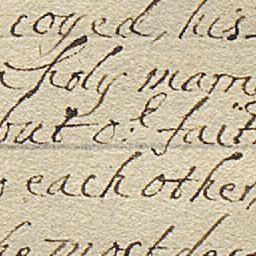 coyed, his
holy marri
but o.e fait
each other,
he most dec